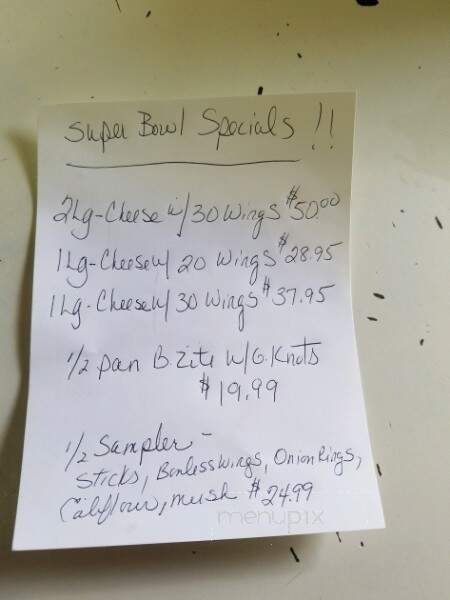 Super Bowl Specials !!
2Lg-Cheese w/ 30 Wings $50.00
1Lg-Cheese w/ 20 Wings $28.95
1Lg-Cheese w/ 30 Wings $37.95
1/2 pan B.Ziti w/G.Knots
$19.99
1/2 Sampler -
Sticks, Bonless Wings, Onion Rings,
Califlower, Mush $24.99
menupix